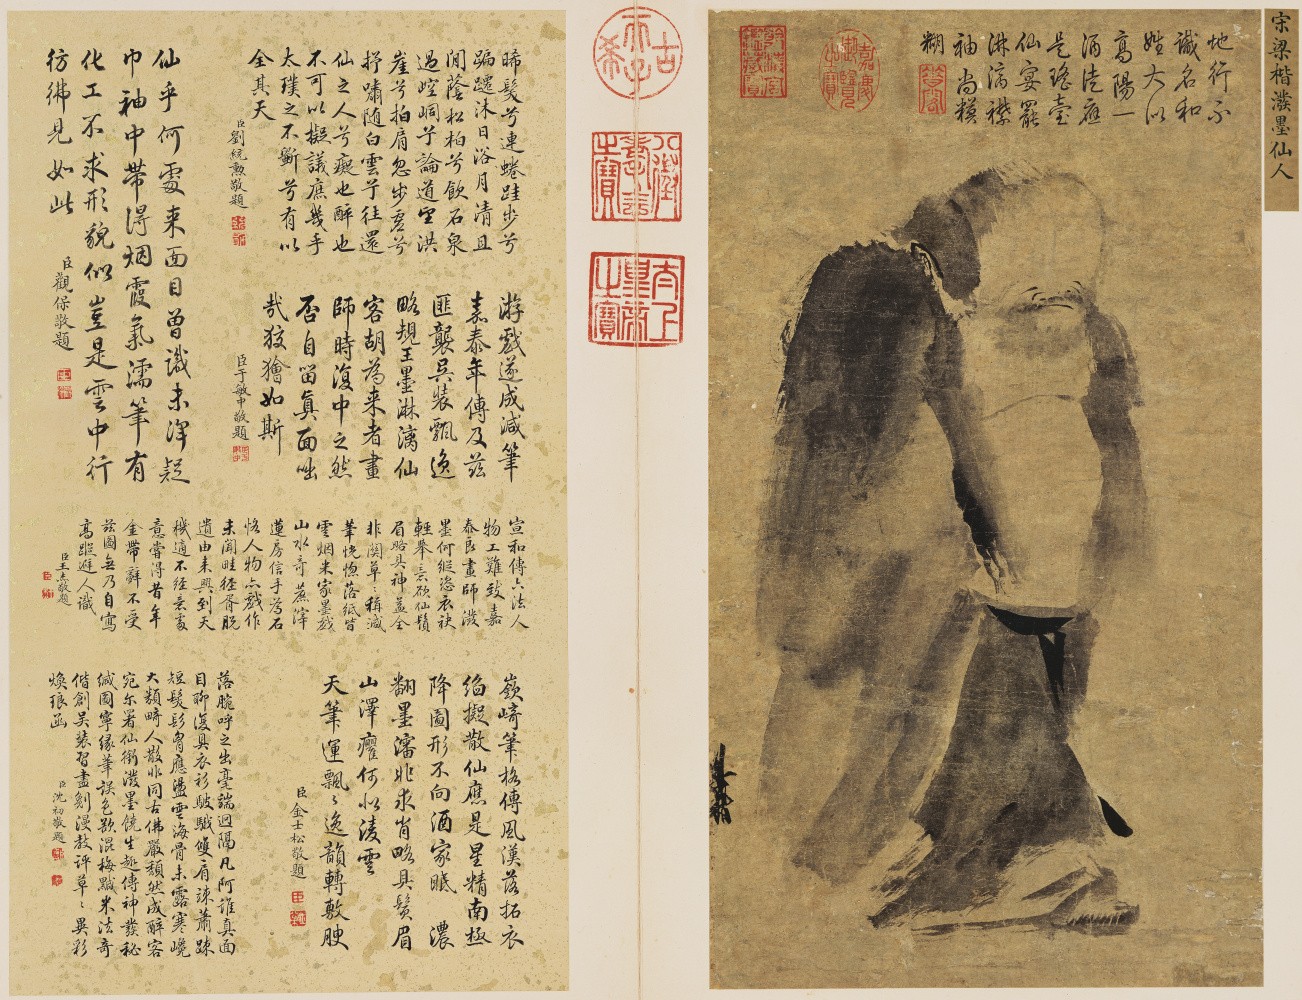 宋梁楷潑墨仙人
地行不
識名和
姓大似
高陽一
酒徒應
是瑤臺
仙宴罷
淋漓襟
袖尚模
糊
嘉慶御覽之寶
古希天子
八徵耄念之寶
太上皇帝之寶
晞髮兮連蜷跬步兮
蹁躚沐日浴月清且
閒蔭松柏兮飲石泉
過崆峒兮論道望洪
崖兮拍肩忽步虛兮
抒嘯隨白雲兮往還
仙之人兮癡也醉也
不可以擬議庶幾乎
太璞之不斲兮有以
全其天
臣劉統勳敬題
仙乎何處来面目曾識未渾疑
巾袖中帶得烟霞氣濡筆有
化工不求形貌似豈是雲中行
彷彿見如此
臣觀保敬題
游戲遂成減筆
嘉泰年傳及茲
匪襲吳裝飄逸
略規王墨淋漓仙
客胡為来者畫
師時復中之然
否自留真面咄
哉狡獪如斯
臣于敏中敬題
宣和傳六法人
物工難致嘉
泰良畫師潑
墨何縱恣衣袂
輕舉意欲仙鬚
眉略具神益全
非關草稱減
筆恍惚落紙皆
雲烟米家墨戲
山水奇蕉滓
蓮房信手為石
恪人物亦戲作
未聞畦徑胥脫
遺由来興到天
機適不經意處
意嘗得昔年
金帶辭不受
茲圖無乃自寫
高蹤遯人識
臣王杰敬題
嶔崎筆格傳風漢落拓衣
絢擬散仙應是星精南極
降圖形不向酒家眠 濃
翻墨瀋非求肖略具鬚眉
山澤癯何似淩雲
天筆運飄飄逸韻轉敷腴
臣金士松敬題
落腕呼之出毫端迥隔凡阿誰真面
目聊復具衣衫皴皵雙肩竦蕭疎
短髮鬖胷應盪雲海骨未露寒巉
大類畸人散非同古佛嚴頹然成醉客
宛尔署仙銜潑墨饒生趣傳神發秘
緘圖寧緣筆誤色欵混梅黬米法奇
偕創吳裝習盡剷漫教評草草異彩
煥琅函
臣沈初敬題